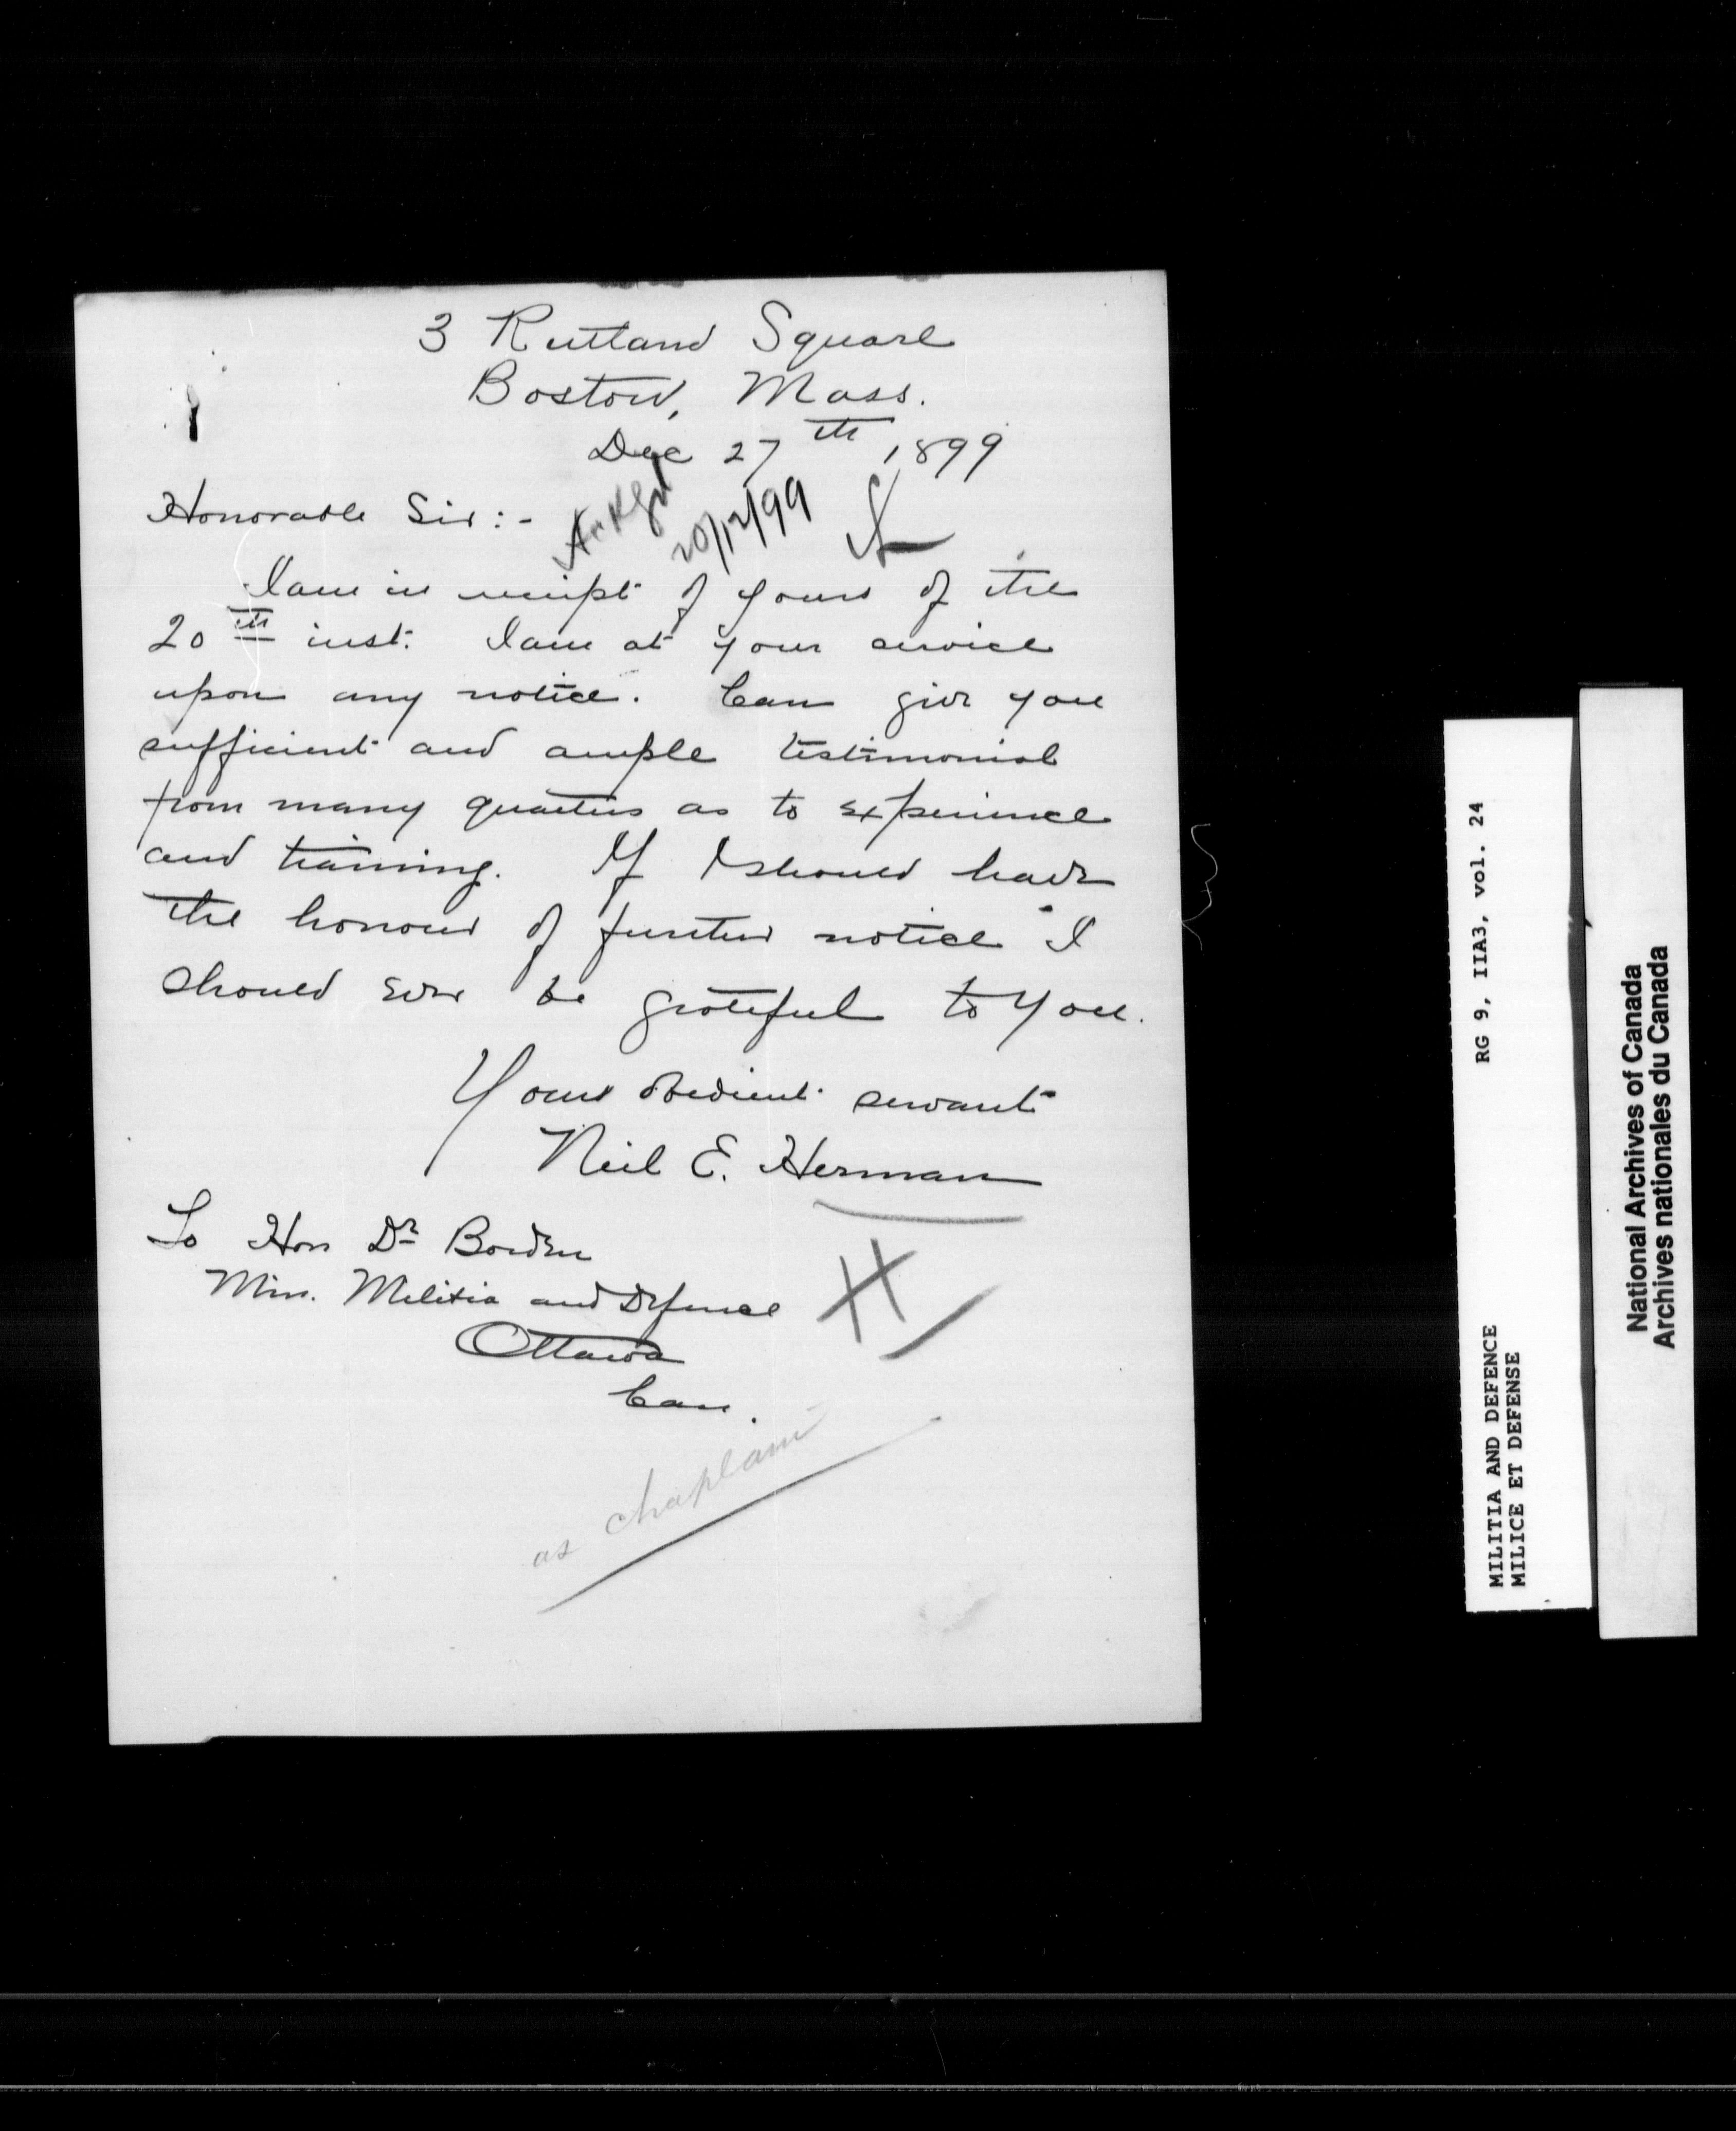 3 Rutland Square
Boston, Mass.
Dec 27th 1899
Honorable Sir:-
Ackgd
20/12/99
I am in receipt of yours of the
20th inst. I am at your service
upon any notice. Can give you
sufficient and ample testimonial
from many quarters as to experience
and training. If I should have
the honour of further notice I
should ever be grateful to you.
Your obedient servant
Neil E. Herman
To Hon Dr Borden
Min. Militia and Defence
Ottawa
Can.
H
as chaplain
RG 9, IIA3, vol. 24
MILITIA AND DEFENCE
MILICE ET DEFENSE
National Archives of Canada
Archives nationales du Canada